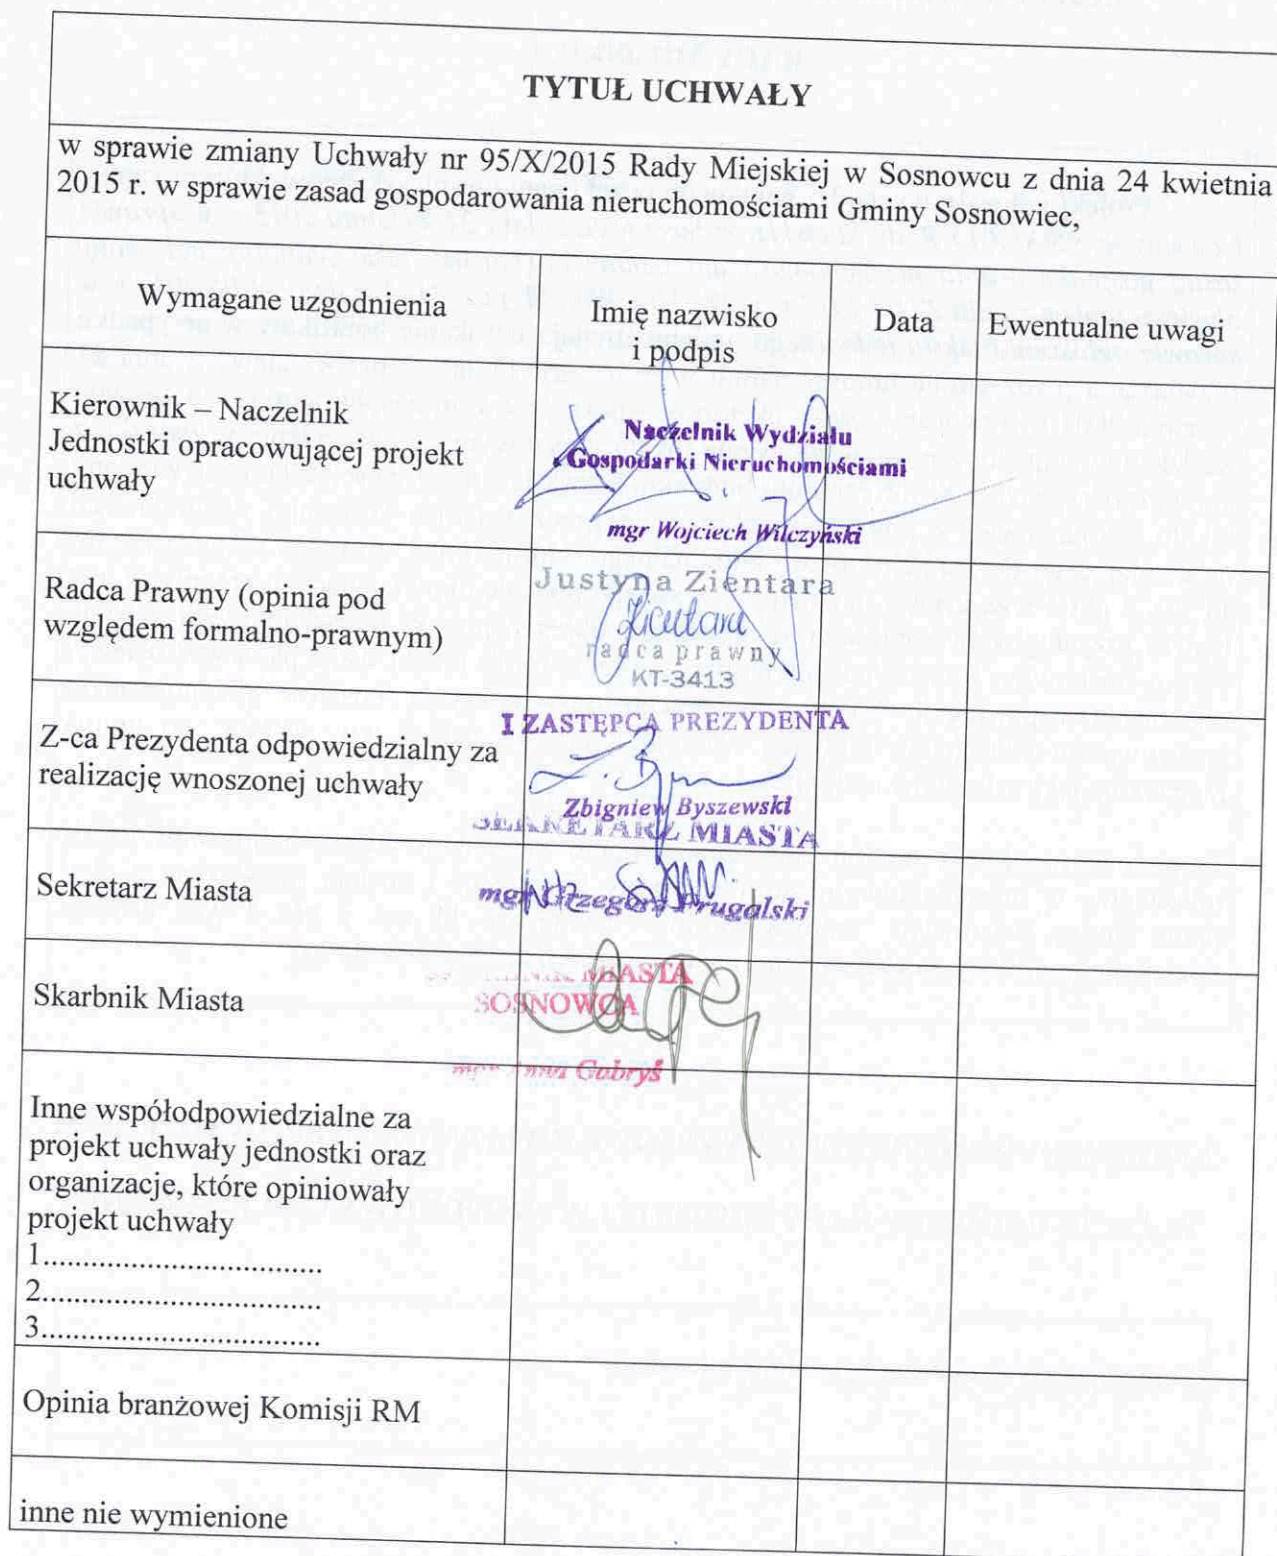 TYTUŁ UCHWAŁY
w sprawie zmiany Uchwały nr 95/X/2015 Rady Miejskiej w Sosnowcu z dnia 24 kwietnia
2015 r. w sprawie zasad gospodarowania nieruchomościami Gminy Sosnowiec,
Wymagane uzgodnienia
Imię nazwisko
i podpis
Data
Ewentualne uwagi
Kierownik – Naczelnik
Jednostki opracowującej projekt
uchwały
Naczelnik Wydziału
Gospodarki Nieruchomościami
mgr Wojciech Wilczyński
Radca Prawny (opinia pod
względem formalno-prawnym)
Justyna Zientara
Zientara
radca prawny
KT-3413
Z-ca Prezydenta odpowiedzialny za
realizację wnoszonej uchwały
I ZASTĘPCA PREZYDENTA
Zbigniew Byszewski
Sekretarz Miasta
SEKRETARZ MIASTA
mgr Grzegorz Prugalski
Skarbnik Miasta
MIASTA
SOSNOWCA
mgr Anna Gabryś
Inne współodpowiedzialne za
projekt uchwały jednostki oraz
organizacje, które opiniowały
projekt uchwały
1..................................
2..................................
3..................................
Opinia branżowej Komisji RM
inne nie wymienione